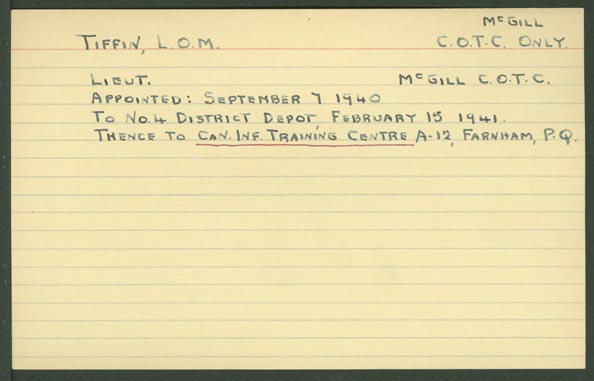 McGILL
TIFFIN, L.O.M. C.O.T.C. ONLY.
LIEUT. McGILL C.O.T.C.
APPOINTED: SEPTEMBER 7 1940
TO NO.4 DISTRICT DEPOT, FEBRUARY 15 1941.
THENCE TO CAN. INF. TRAINING CENTRE A-12, FARNHAM, P.Q.